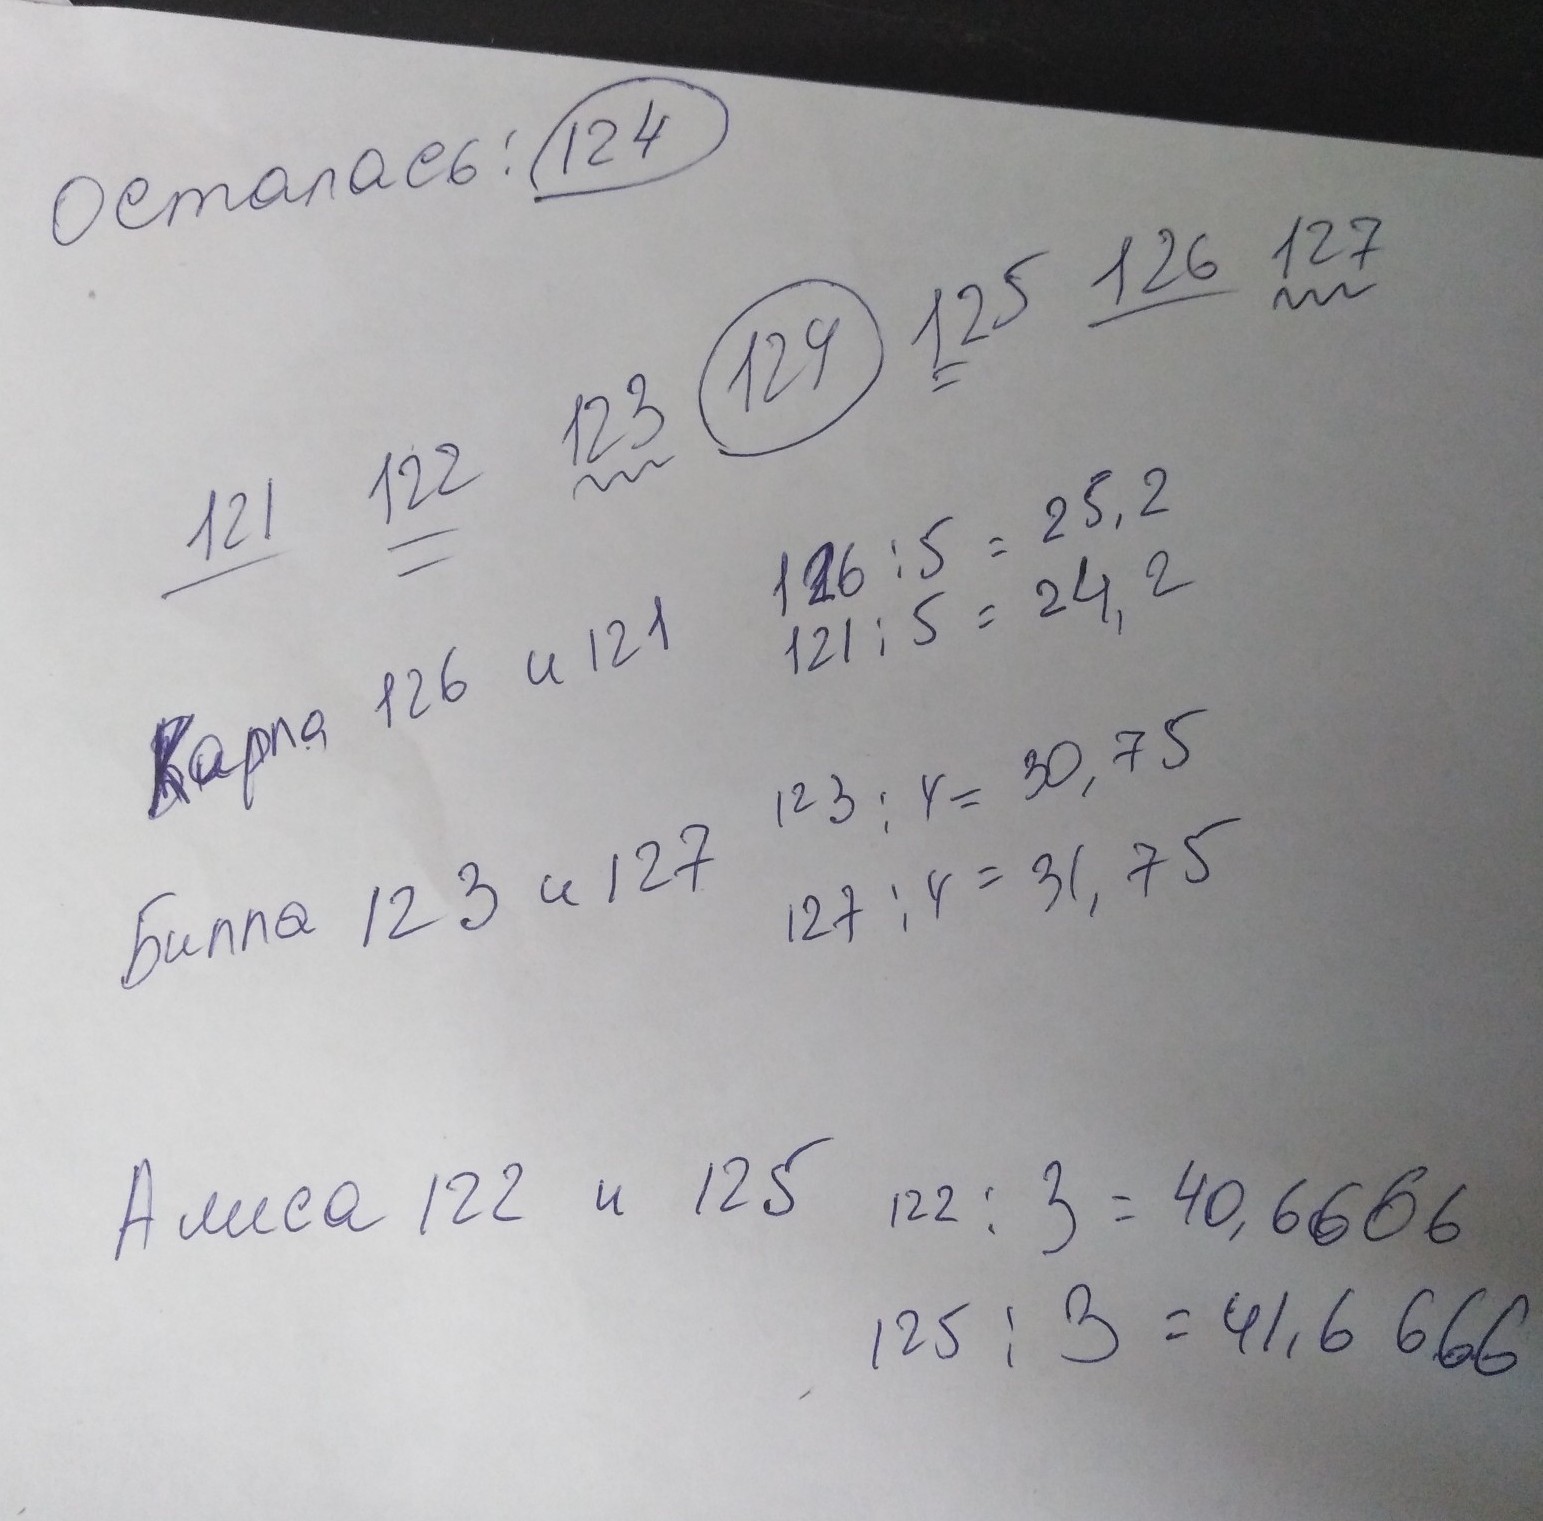 Осталась: 124
121 122 123 124 125 126 127
Карла 126 и 121
126 : 5 = 25,2
121 : 5 = 24,2
Билла 123 и 127
123 : 4 = 30,75
127 : 4 = 31,75
Алиса 122 и 125
122 : 3 = 40,6666
125 : 3 = 41,6 666